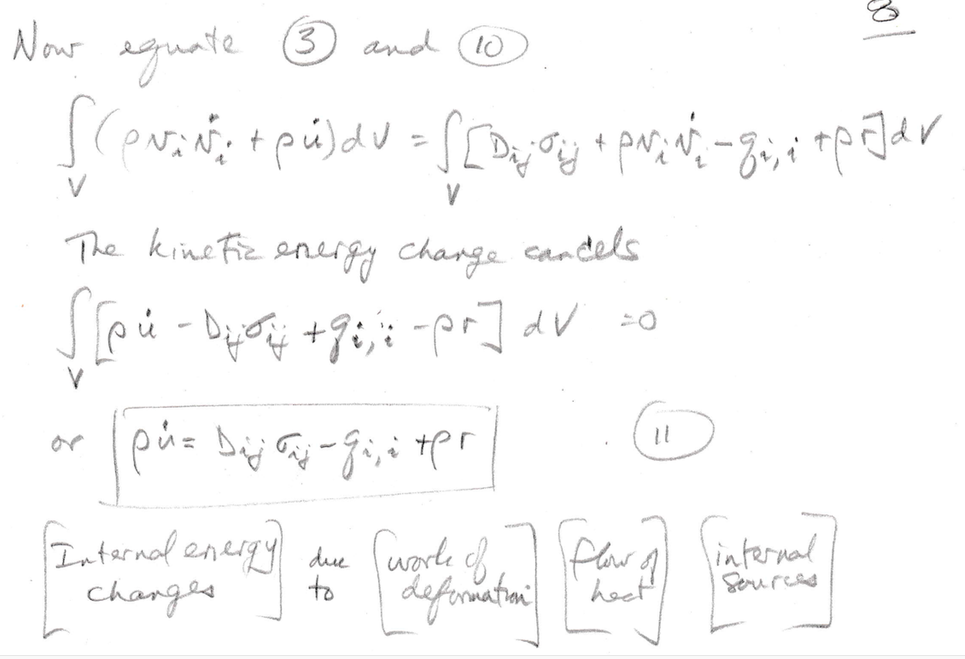 8
Now equate ③ and ⑩
∫_V (ρvᵢv̇ᵢ + ρu̇)dV = ∫_V [Dᵢⱼσᵢⱼ + ρvᵢv̇ᵢ − qᵢ,ᵢ + ρr]dV
The kinetic energy change cancels
∫_V [ρu̇ − Dᵢⱼσᵢⱼ + qᵢ,ᵢ − ρr] dV = 0
or ρu̇ = Dᵢⱼσᵢⱼ − qᵢ,ᵢ + ρr ⑪
[Internal energy changes] due to [work of deformation] [flow of heat] [internal sources]